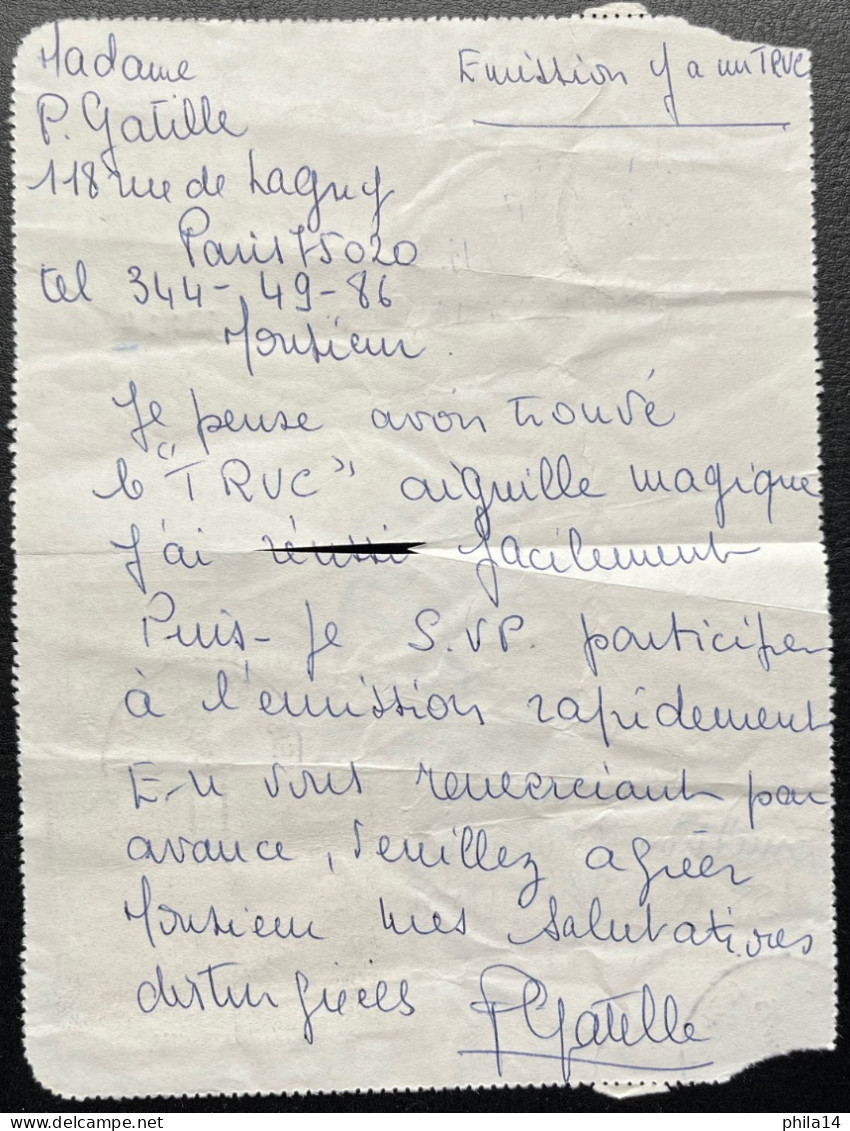 Madame
Emission Y a un TRUC
P. Gatille
118 rue de Lagny
Paris 75020
tel 344-49-86
Monsieur.
Je pense avoir trouvé
le "TRUC" aiguille magique
J'ai réussi facilement
Puis-je S.VP. participer
à l'emission rapidement
En vous remerciant par
avance, veuillez agréer
Monsieur mes salutations
distinguées
PGatille
delcampe.net
phila14